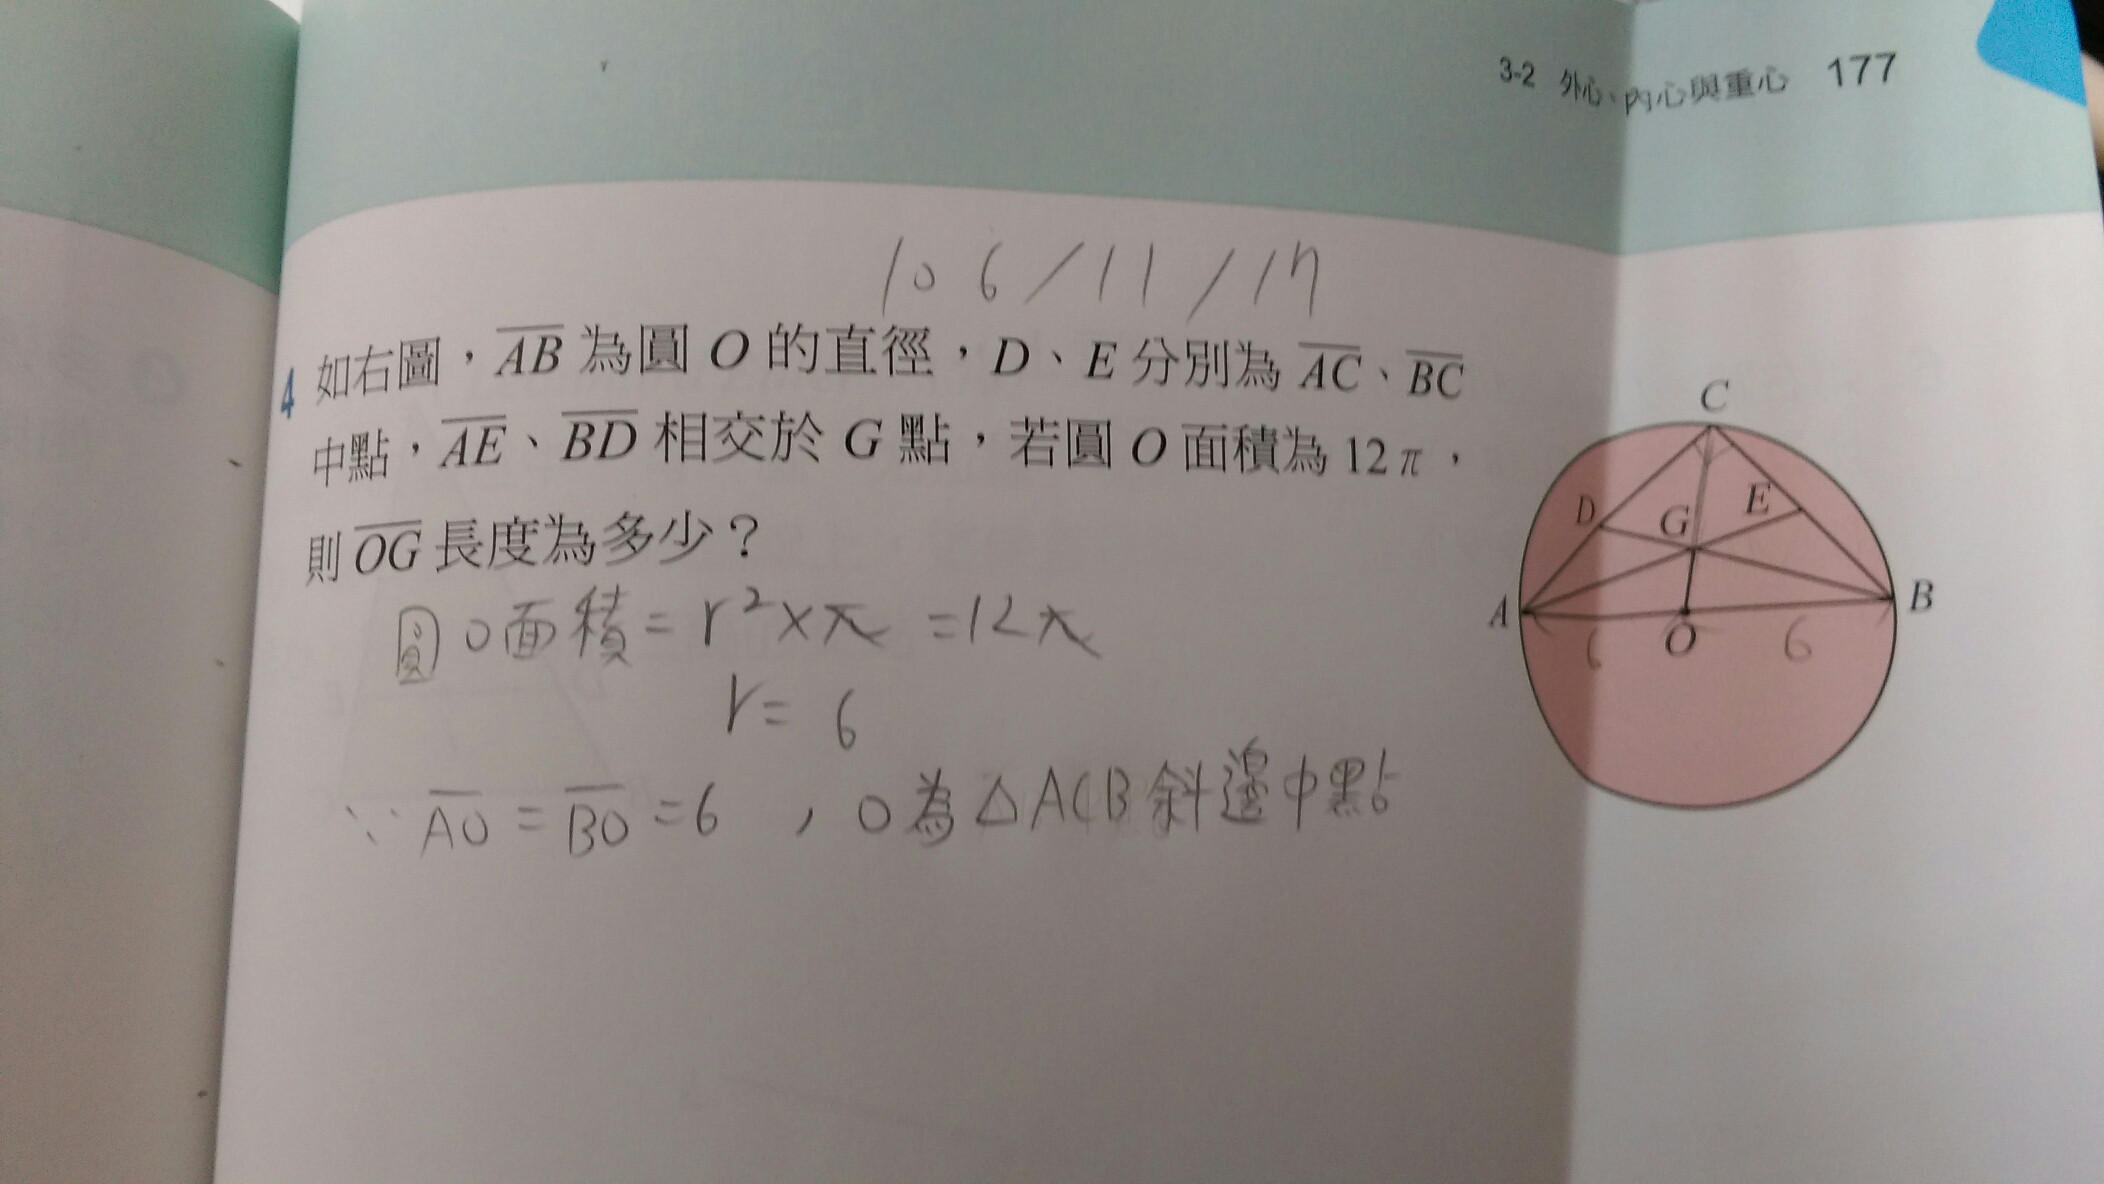 3-2 外心、內心與重心 177
106/11/17
4 如右圖，AB 為圓 O 的直徑，D、E 分別為 AC、BC
中點，AE、BD 相交於 G 點，若圓 O 面積為 12π，
則 OG 長度為多少？
圓O面積=r²×π=12π
r=6
∵ AO=BO=6，O為△ACB斜邊中點
C
D
G
E
A
O
B
6